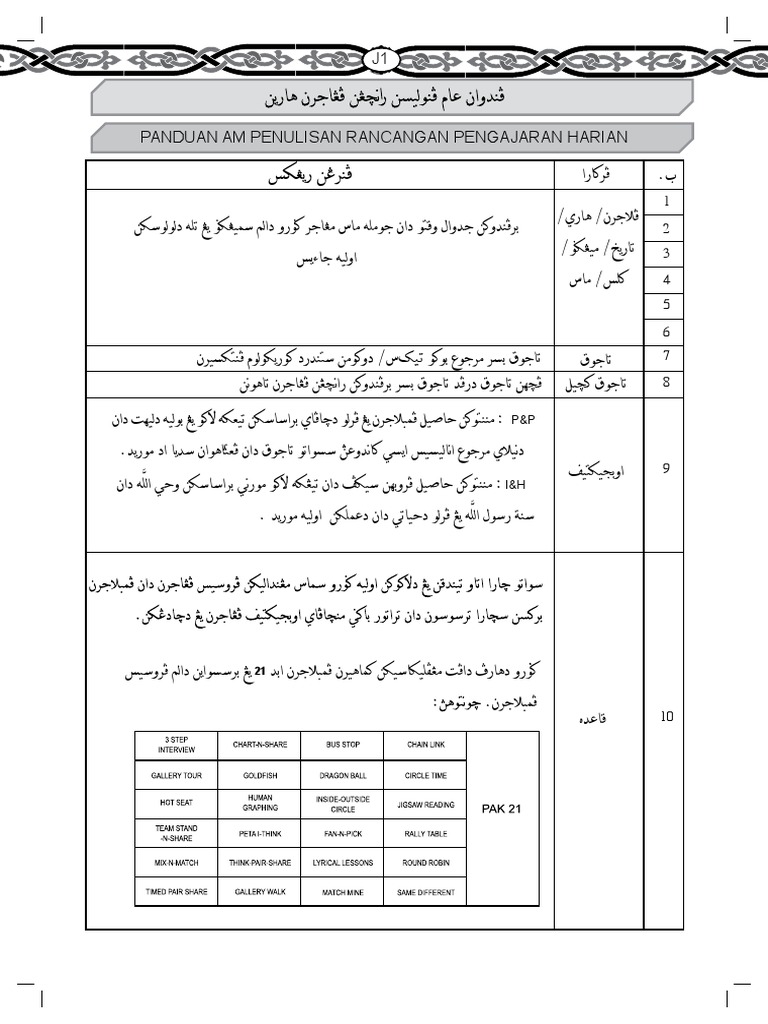 J1
ڤندوان عام ڤنوليسن رانچڠن ڤڠاجرن هارين
PANDUAN AM PENULISAN RANCANGAN PENGAJARAN HARIAN
ب. ڤركارا ڤنرڠن ريڠكس
1
2
3
4
5
6
ڤلاجرن/ هاري/
تاريخ/ ميڠݢو/
كلس/ ماس
برڤندوكن جدوال وقتو دان جومله ماس مڠاجر ݢورو دالم سميڠݢو يڠ تله دلولوسكن
اوليه جاءيس
7 تاجوق تاجوق بسر مرجوع بوكو تيكس/ دوكومن ستندرد كوريكولوم ڤنتكسيرن
8 تاجوق كچيل ڤچهن تاجوق درڤد تاجوق بسر برڤندوكن رانچڠن ڤڠاجرن تاهونن
9 اوبجيكتيف
P&P : مننتوكن حاصيل ڤمبلاجرن يڠ ڤرلو دچاڤاي براساسكن تيڠكه لاكو يڠ بوليه دليهت دان
دنيلاي مرجوع اناليسيس ايسي كاندوڠن سسواتو تاجوق دان ڤڠتاهوان سديا اد موريد .
I&H : مننتوكن حاصيل ڤروبهن سيكڤ دان تيڠكه لاكو مورني براساسكن وحي الله دان
سنة رسول الله يڠ ڤرلو دحياتي دان دعملكن اوليه موريد .
10 قاعده
سواتو چارا اتاو تيندقن يڠ دلاكوكن اوليه ݢورو سماس مڠنداليكن ڤروسيس ڤڠاجرن دان ڤمبلاجرن
بركسن سچارا ترسوسون دان تراتور باݢي منچاڤاي اوبجيكتيف ڤڠاجرن يڠ دچادڠكن.
ݢورو دهارڤ داڤت مڠڤليكاسيكن كماهيرن ڤمبلاجرن ابد 21 يڠ برسسواين دالم ڤروسيس
ڤمبلاجرن. چونتوهڽ:
3 STEP INTERVIEW CHART-N-SHARE BUS STOP CHAIN LINK
GALLERY TOUR GOLDFISH DRAGON BALL CIRCLE TIME
HOT SEAT HUMAN GRAPHING INSIDE-OUTSIDE CIRCLE JIGSAW READING
PAK 21
TEAM STAND -N-SHARE PETA I-THINK FAN-N-PICK RALLY TABLE
MIX-N-MATCH THINK-PAIR-SHARE LYRICAL LESSONS ROUND ROBIN
TIMED PAIR SHARE GALLERY WALK MATCH MINE SAME DIFFERENT